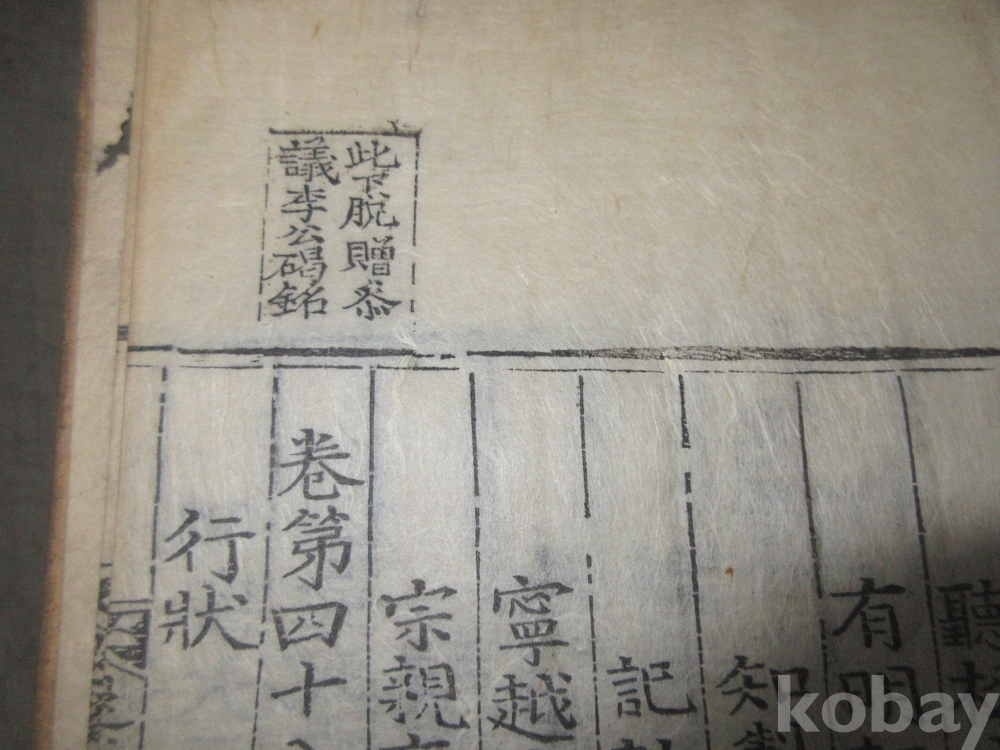 此下脫贈叅
議李公碣銘
聽
有明
知製
記
寧越
宗親
卷第四十
行狀
kobay